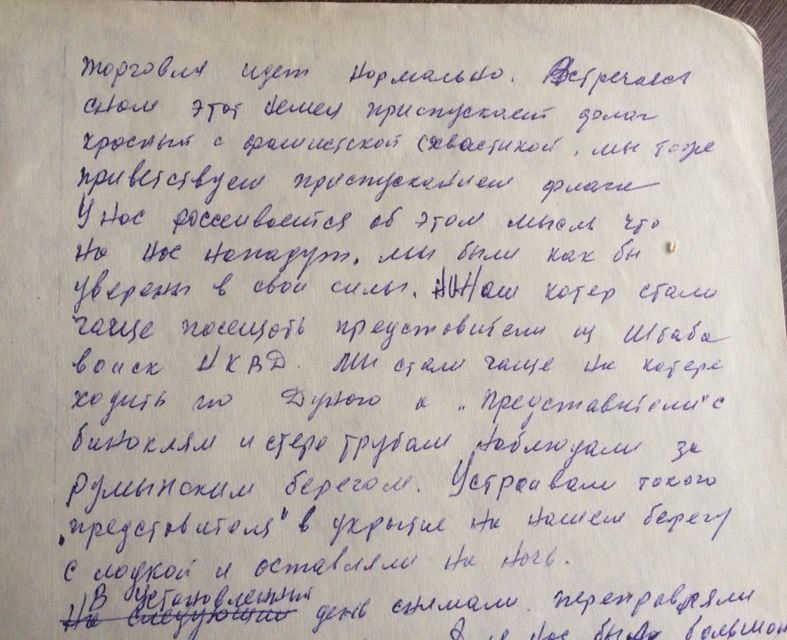 торговля идет нормально. Встречаяся
снами этот немец приспускает флаг
красный с фашистской свастикой, мы тоже
приветствуем приспусканием флага
У нас рассеивается об этом мысль что
на нас нападут, мы были как бы
уверены в свои силы. Наш катер стали
чаще посещать представители из Штаба
войск НКВД. Мы стали чаще на катере
ходить по Дунаю а „представители" с
биноклям и стереотрубами наблюдали за
румынским берегом. Устраивали такого
„представителя" в укрытие на нашем берегу
с лодкой и оставляли на ночь.
В установленный
На следующий день снимали, переправляли
нас было большом